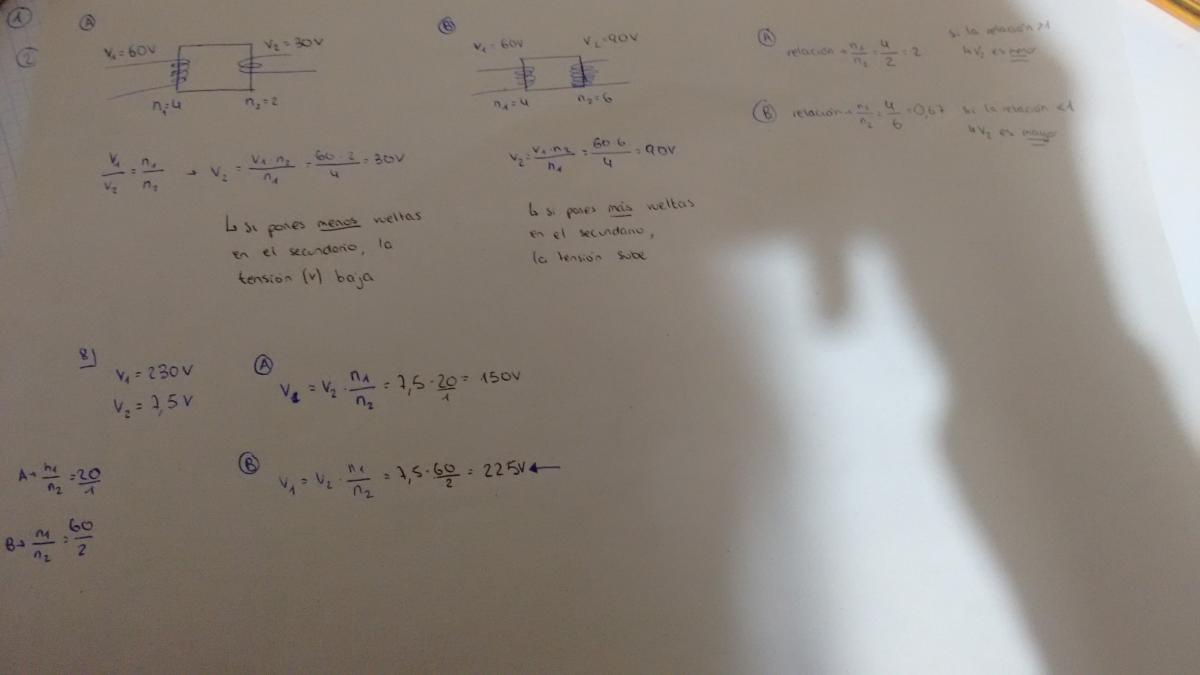 1
2
A
V₁=60V
V₂=30V
n₁=4
n₂=2
V₁/V₂ = n₁/n₂ → V₂ = V₁·n₂/n₁ = 60·2/4 = 30V
↳ si pones menos vueltas
en el secundario, la
tensión (V) baja
B
V₁=60V
V₂=90V
n₁=4
n₂=6
V₂ = V₁·n₂/n₁ = 60·6/4 = 90V
↳ si pones más vueltas
en el secundario,
la tensión sube
A
relación → n₁/n₂ = 4/2 = 2
si la relación >1
↳ V₂ es menor
B
relación → n₁/n₂ = 4/6 = 0,67
si la relación <1
↳ V₂ es mayor
8)
V₁ = 230V
V₂ = 7,5V
A → n₁/n₂ = 20/1
B → n₁/n₂ = 60/2
A
V₁ = V₂ · n₁/n₂ = 7,5 · 20/1 = 150V
B
V₁ = V₂ · n₁/n₂ = 7,5 · 60/2 = 225V ←